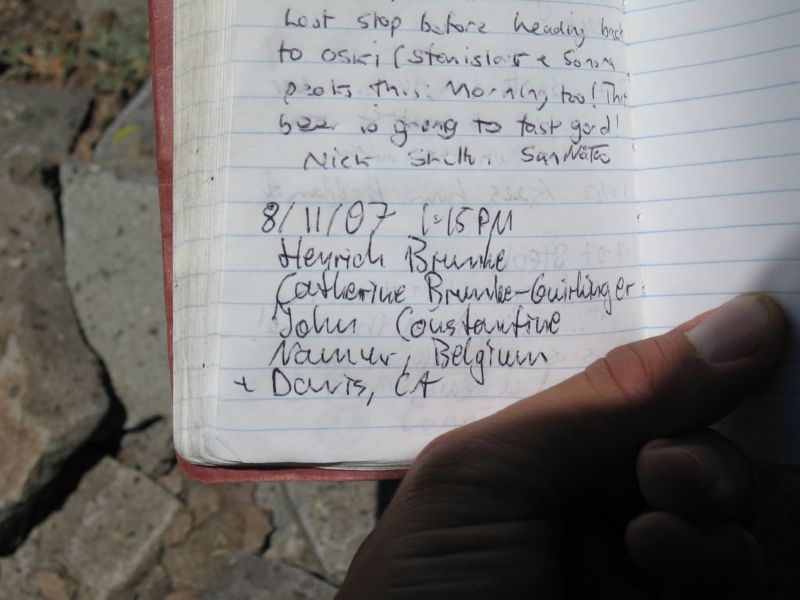 Last stop before heading back
to oski (stanislaus & Sonora
peaks this morning too! The
beer is going to tast good!
Nick San Mateo
8/11/07 1:15 PM
Henrich Brunke
Catherine Brunke-Guirlinger
John Constantine
Namur, Belgium
+ Davis, CA